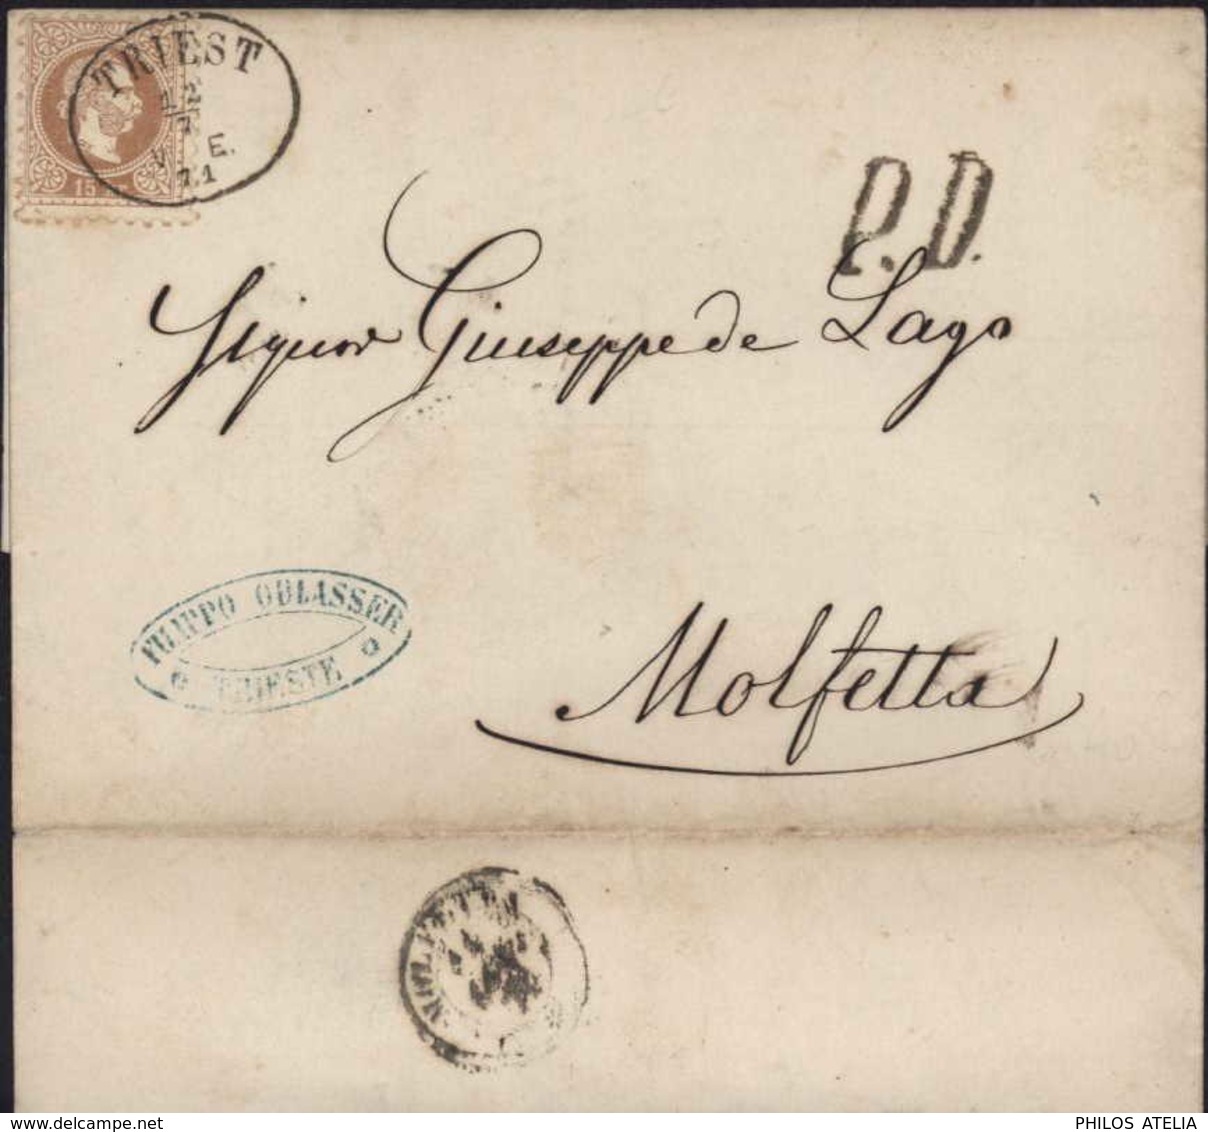 TRIEST
12
7
V. E.
71
15
P.D.
Signor Giuseppe de Lago
FILIPPO OBLASSER
TRIESTE
Molfetta
MOLFETTA
PHILOS ATELIA